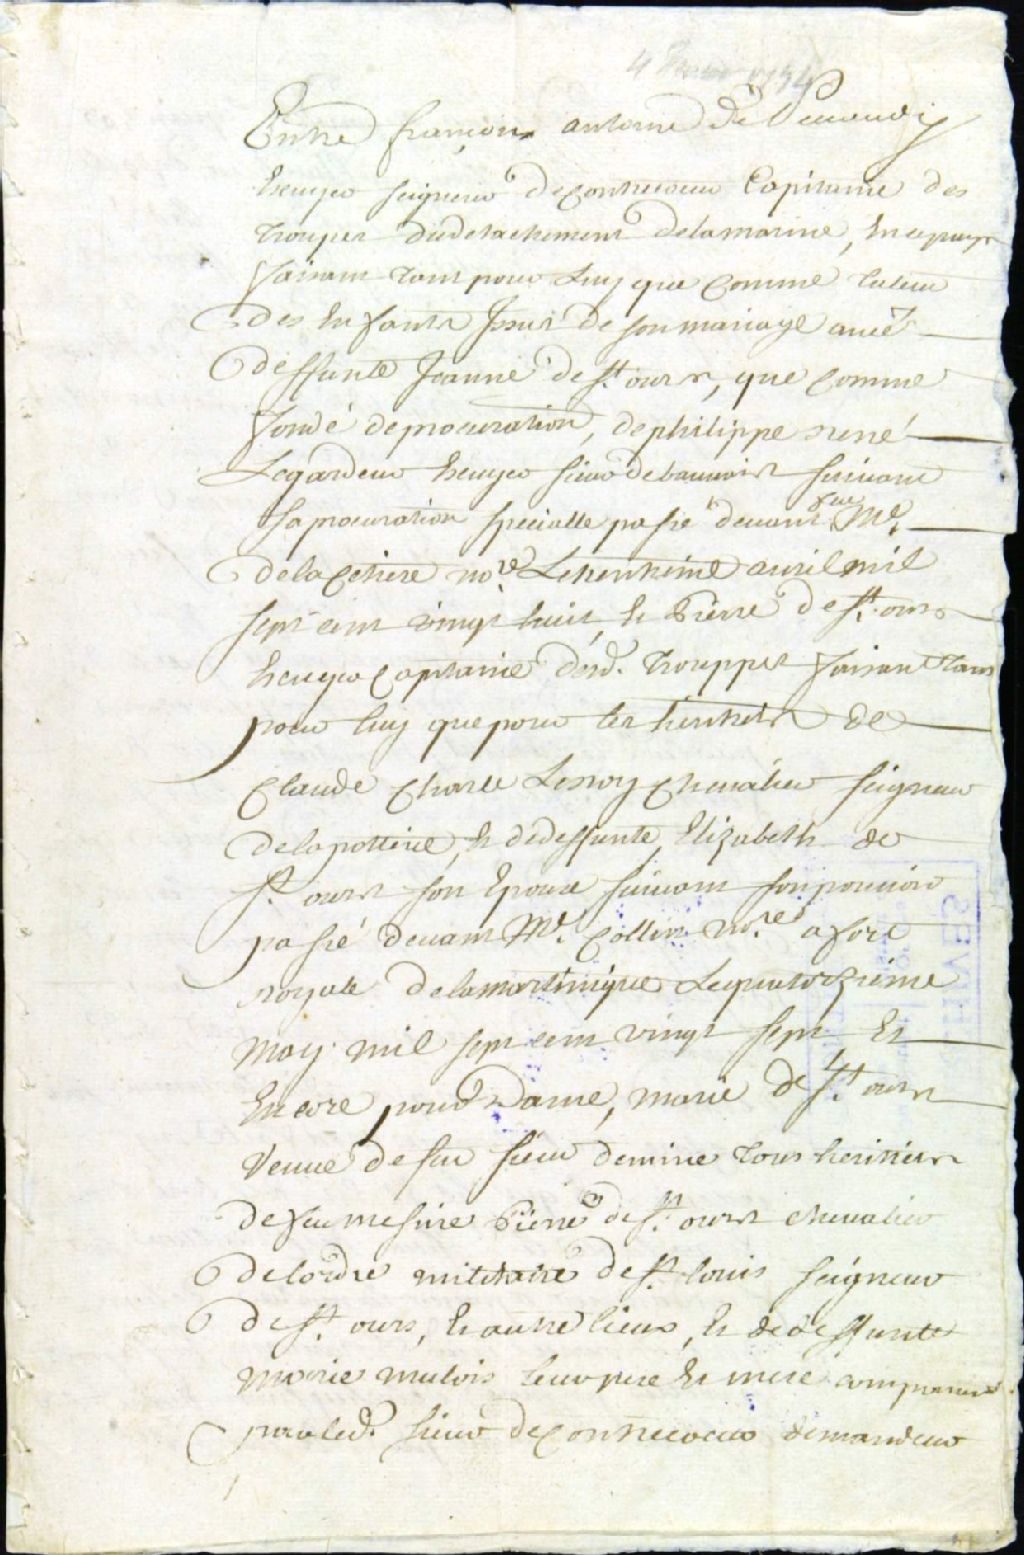 Entre françois antoine de Pecaudy
Ecuyer seigneur de Contrecoeur Capitaine des
trouppes du detachement de la marine, en ce pays
faisant tant pour Luy que comme tuteur
des Enfants Issus de son mariage avec
deffunte Jeanne de St. ours, que comme
fondé de procuration, de philippe rené
Legardeur Ecuyer sieur de beauvais suivant
sa procuration specialle passé devant Me.
de la Cetiere nore. Le trentieme avril mil
sept cent vingt huit, Et Pierre de St. ours
Ecuyer Capitaine desd. trouppes faisant tant
pour luy que pour les heritiers de
Claude Charle Leroy Chevalier seigneur
de la potterie, Et de deffunte Elizabeth de
St. ours son Epouse suivant son pouvoir
passé devant Me. Collin nore. a fort
royale de la martinique Le quatorzieme
may mil sept cent vingt sept Et
Encore pour Dame, marie de St. ours
veuve de feu sieur demine tous heritiers
de feu messire Pierre de St. ours chevalier
de l'ordre militaire de St. louis seigneur
de St. ours, Et autre lieux, Et de deffunte
marie mulois leur pere Et mere comparant
par led. sieur de Contrecoeur demandeur